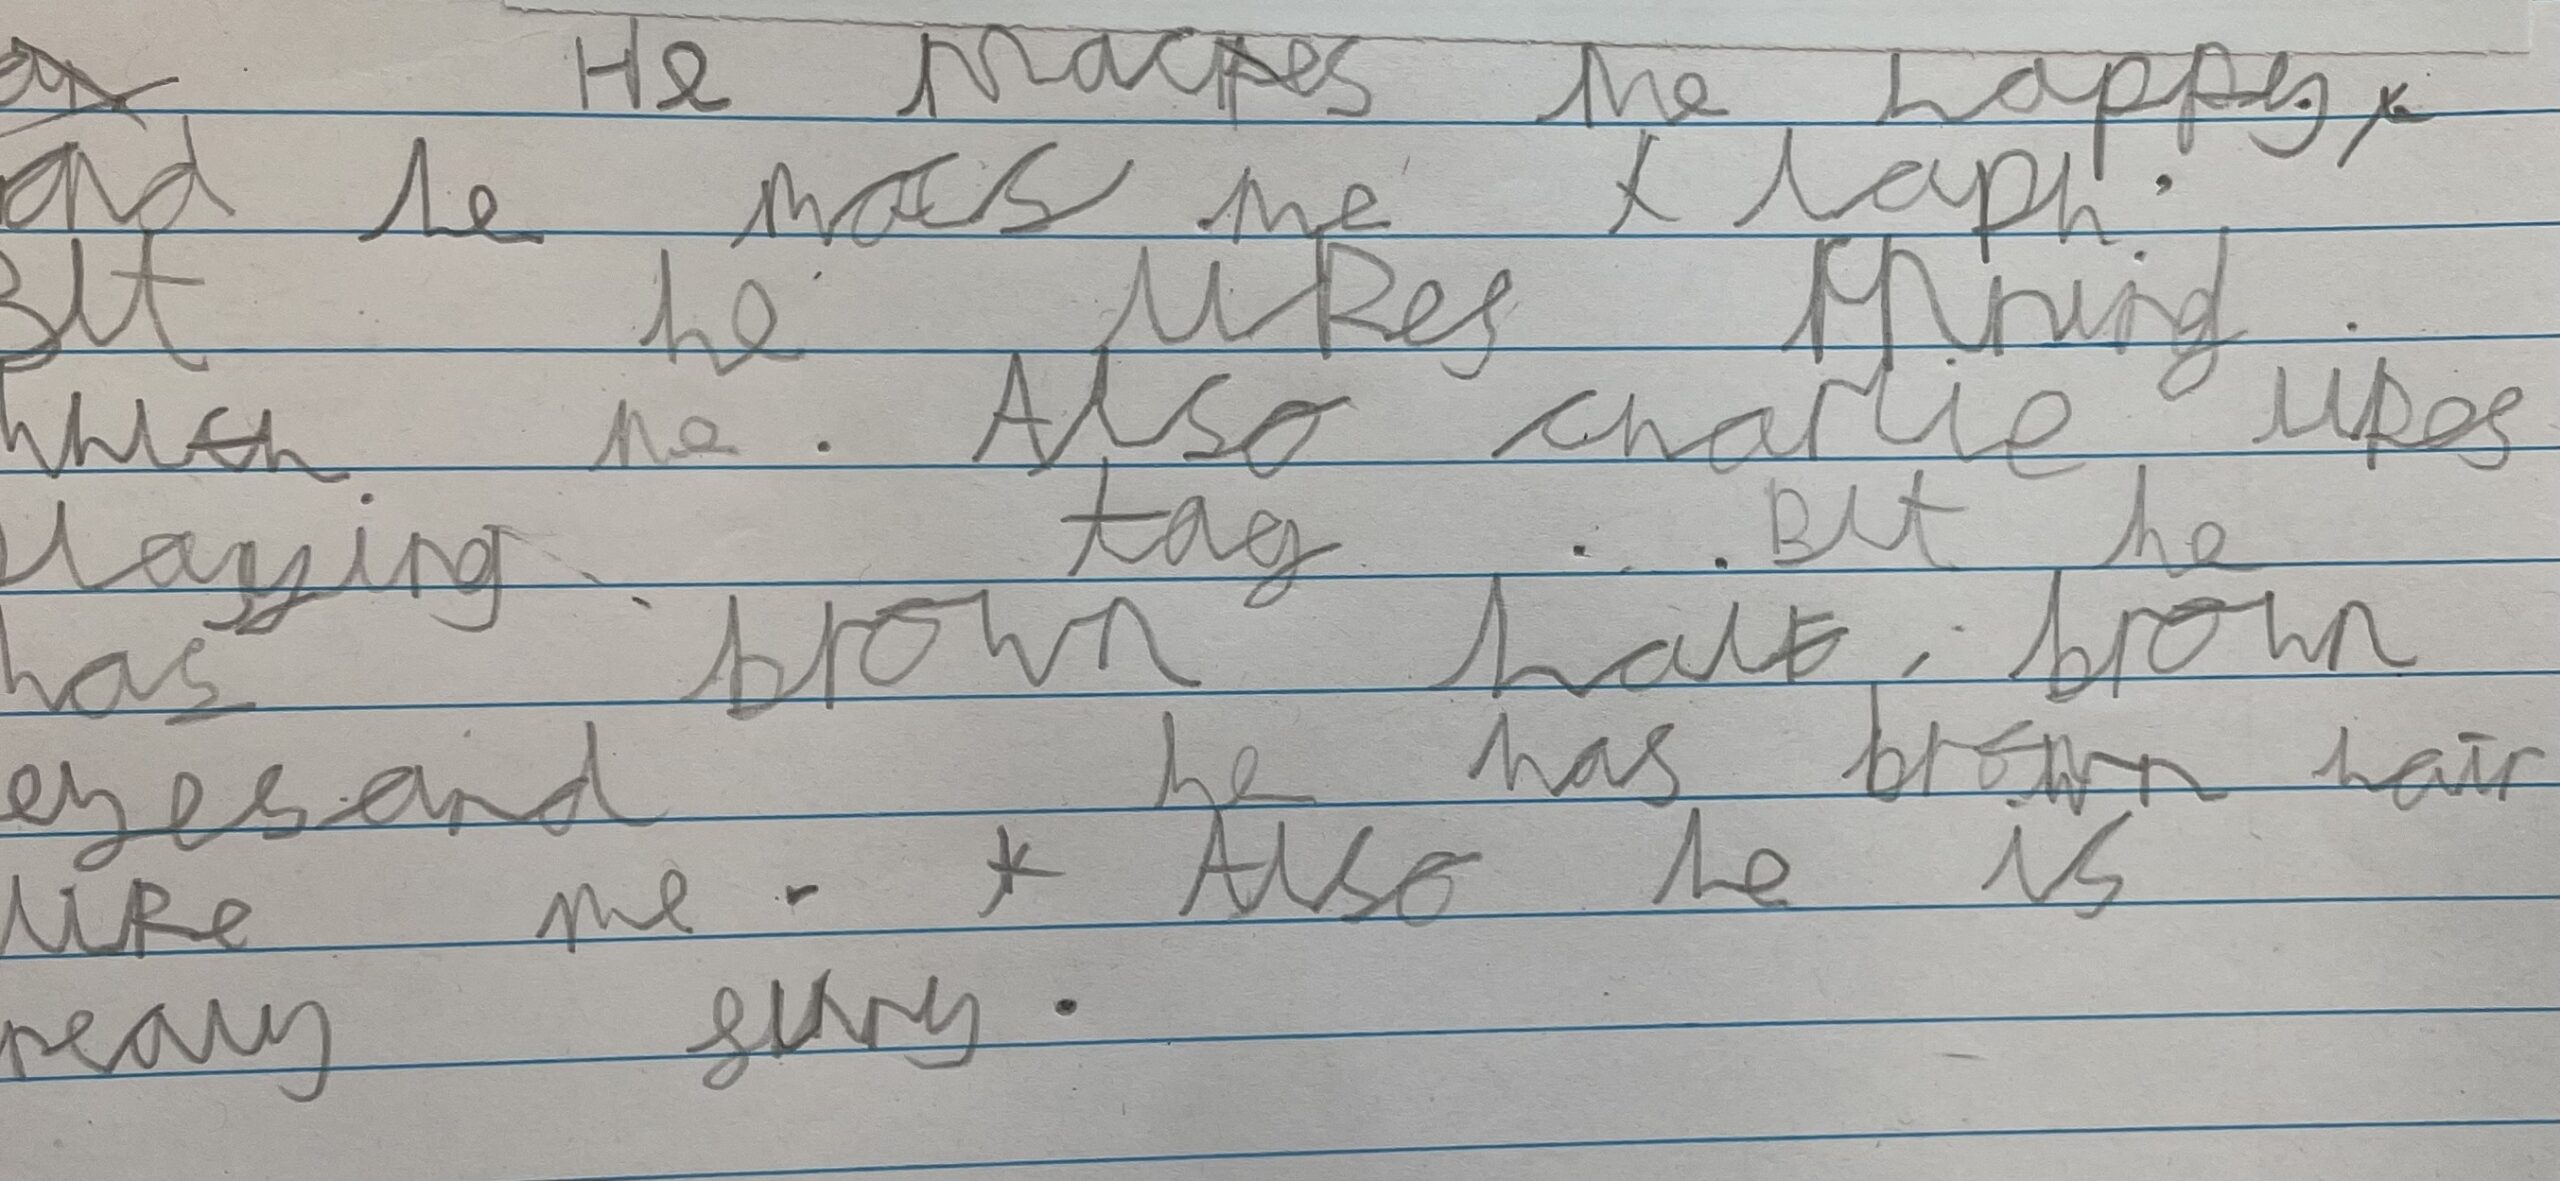 He mackes me happy,
and he macs me laph.
But he likes runing.
whith me. Also charlie likes
playing tag. But he
has brown hair, brown
eyes and he has brown hair
like me. Also he is
realy funy.